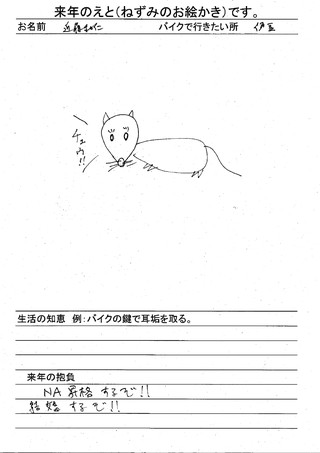 来年のえと(ねずみのお絵かき)です。
お名前 近藤 バイクで行きたい所 伊豆
チュウ!!
生活の知恵 例:バイクの鍵で耳垢を取る。
来年の抱負
NA昇格するぞ!!
結婚するぞ!!